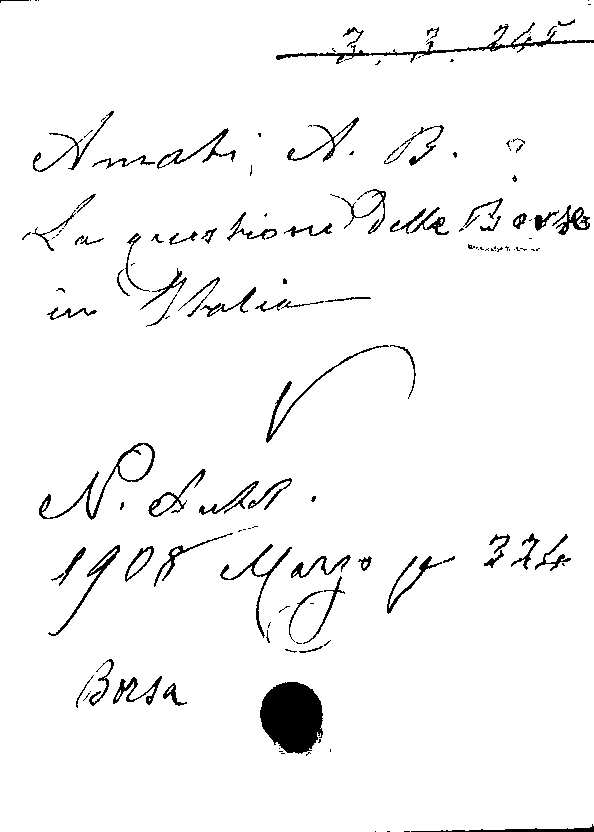 3. 3. 245
Amati, A. B. ?
La questione delle Borse
in Italia
V
N. Antol.
1908 Marzo p 324
Borsa